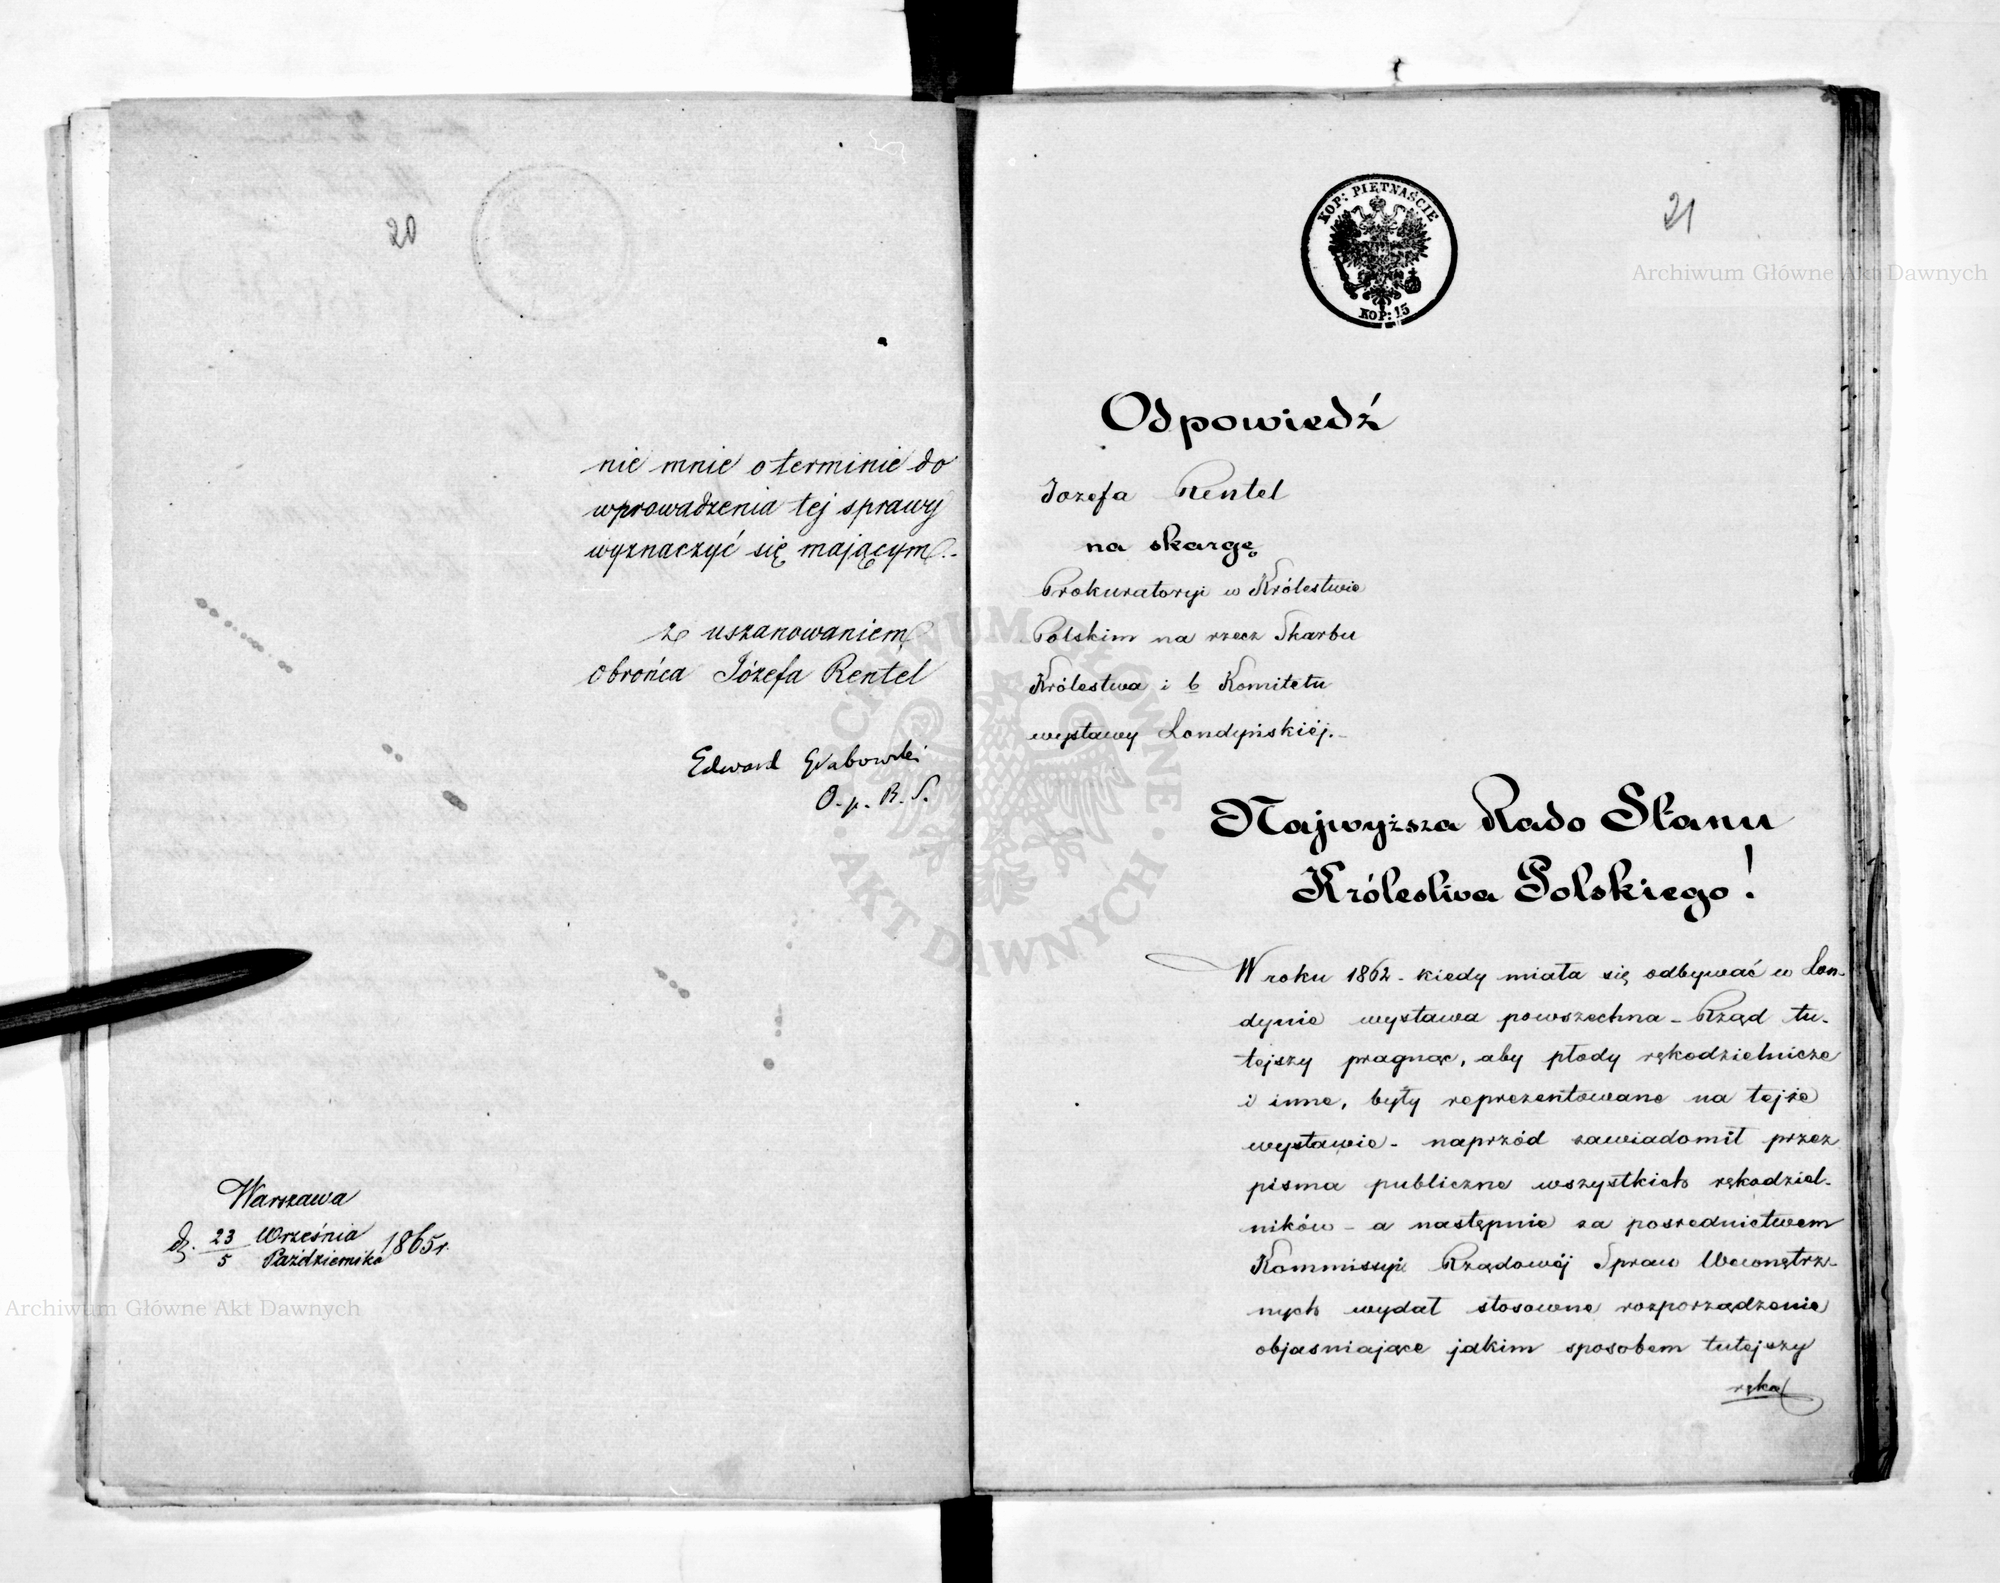 20
nie mnie o terminie do
wprowadzenia tej sprawy
wyznaczyć się mającym.-
z uszanowaniem
Obrońca Józefa Rentel
Edward Grabowski
O. p. R. S.
Warszawa
d. 23/5 Września/Października 1865 r.
Archiwum Główne Akt Dawnych
21
KOP: PIĘTNAŚCIE
KOP: 15
Archiwum Główne Akt Dawnych
Odpowiedź
Jozefa Rentel
na skargę
Prokuratoryi w Królestwie
Polskim na rzecz Skarbu
Królestwa i b Komitetu
wystawy Londyńskiéj.-
Najwyższa Rado Stanu
Królestwa Polskiego!
W roku 1862 - kiedy miała się odbywać w Lon-
dynie wystawa powszechna - Rząd tu-
tejszy pragnąc, aby płody rękodzielnicze
i inne, były reprezentowane na tejże
wystawie - naprzód zawiadomił przez
pisma publiczne wszystkich rękodziel-
ników - a następnie za posrednictwem
Kommissyi Rządowéj Spraw Wewnętrz-
nych wydał stosowne rozporządzenie
objasniające jakim sposobem tutejszy
ręko
ARCHIWUM GŁÓWNE · AKT DAWNYCH ·